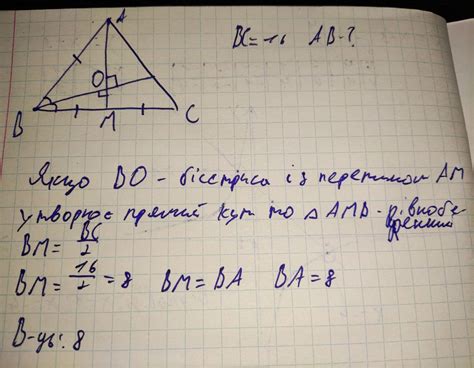 A
BC=16 AB-?
O
B M C
Якщо BO - бісектриса із перетином AM
утворює прямий кут то △ AMB - рівнобе
дренний
BM = BC/2
BM = 16/2 = 8 BM = BA BA = 8
В-дь: 8